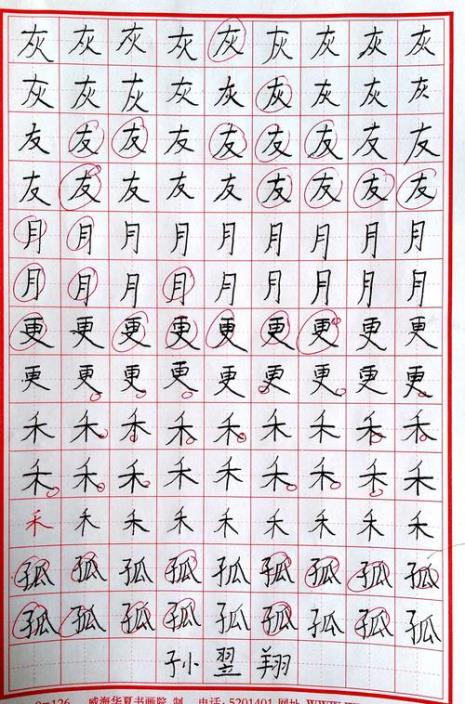 灰灰灰灰灰灰灰灰灰
灰灰灰灰灰灰灰灰灰
友友友友友友友友友
友友友友友友友友友
月月月月月月月月月
月月月月月月月月月
更更更更更更更更更
更更更更更更更更更
禾禾禾禾禾禾禾禾禾
禾禾禾禾禾禾禾禾禾
禾禾禾禾禾禾禾禾禾
孤孤孤孤孤孤孤孤孤
孤孤孤孤孤孤孤孤孤
孙翌翔
威海华夏书画院 制 电话: 5201401 网址